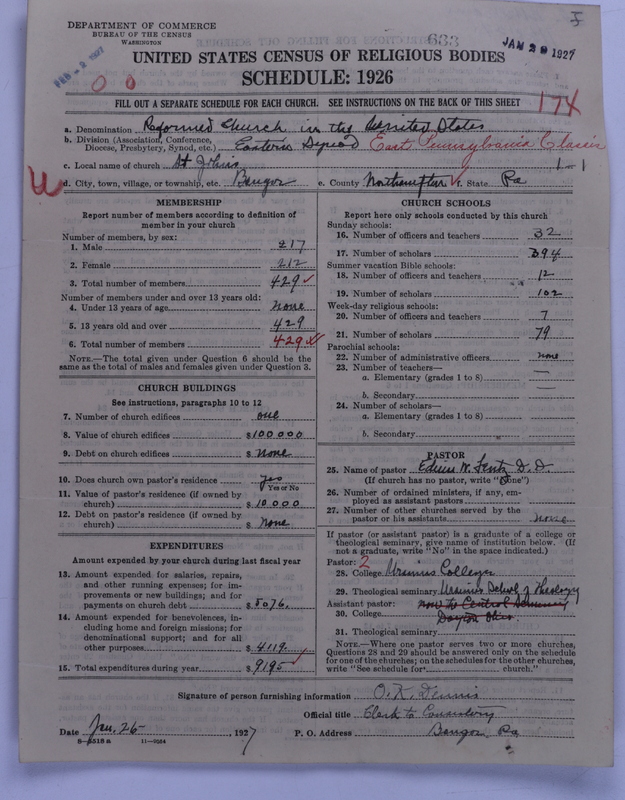 DEPARTMENT OF COMMERCE
BUREAU OF THE CENSUS
WASHINGTON
633
JAN 29 1927
FEB -2 1927
UNITED STATES CENSUS OF RELIGIOUS BODIES
SCHEDULE: 1926
0 0
FILL OUT A SEPARATE SCHEDULE FOR EACH CHURCH. SEE INSTRUCTIONS ON THE BACK OF THIS SHEET
174
a. Denomination Reformed Church in the United States
b. Division (Association, Conference, Diocese, Presbytery, Synod, etc.) Eastern Synod East Pennsylvania Classis
c. Local name of church St Johns 1-1
d. City, town, village, or township, etc. Bangor e. County Northampton f. State Pa
MEMBERSHIP
Report number of members according to definition of
member in your church
Number of members, by sex:
1. Male 217
2. Female 212
3. Total number of members 429
Number of members under and over 13 years old:
4. Under 13 years of age none
5. 13 years old and over 429
6. Total number of members 429
NOTE.—The total given under Question 6 should be the
same as the total of males and females given under Question 3.
CHURCH BUILDINGS
See instructions, paragraphs 10 to 12
7. Number of church edifices one
8. Value of church edifices $100000
9. Debt on church edifices $ None
10. Does church own pastor's residence yes
Yes or No
11. Value of pastor's residence (if owned by
church) $10000
12. Debt on pastor's residence (if owned by
church) $ None
EXPENDITURES
Amount expended by your church during last fiscal year
13. Amount expended for salaries, repairs,
and other running expenses; for im-
provements or new buildings; and for
payments on church debt $5076
14. Amount expended for benevolences, in-
cluding home and foreign missions; for
denominational support; and for all
other purposes $4119
15. Total expenditures during year $9195
CHURCH SCHOOLS
Report here only schools conducted by this church
Sunday schools:
16. Number of officers and teachers 32
17. Number of scholars 394
Summer vacation Bible schools:
18. Number of officers and teachers 12
19. Number of scholars 102
Week-day religious schools:
20. Number of officers and teachers 7
21. Number of scholars 79
Parochial schools:
22. Number of administrative officers none
23. Number of teachers—
a. Elementary (grades 1 to 8) —
b. Secondary —
24. Number of scholars—
a. Elementary (grades 1 to 8)
b. Secondary
PASTOR
25. Name of pastor Edwin W. Lentz D.D.
(If church has no pastor, write "None")
26. Number of ordained ministers, if any, em-
ployed as assistant pastors
27. Number of other churches served by the
pastor or his assistants none
If pastor (or assistant pastor) is a graduate of a college or
theological seminary, give name of institution below. (If
not a graduate, write "No" in the space indicated.)
Pastor: 2
28. College Ursinus College
29. Theological seminary Ursinus School of Theology
Assistant pastor: now the Central Seminary
30. College Dayton Ohio
31. Theological seminary
NOTE.—Where one pastor serves two or more churches,
Questions 28 and 29 should be answered only on the schedule
for one of the churches; on the schedules for the other churches,
write "See schedule for church."
Signature of person furnishing information O. K. Dennis
Official title Clerk to Consistory
Date Jan. 26, 1927 P. O. Address Bangor Pa
8—5518a 11—9584